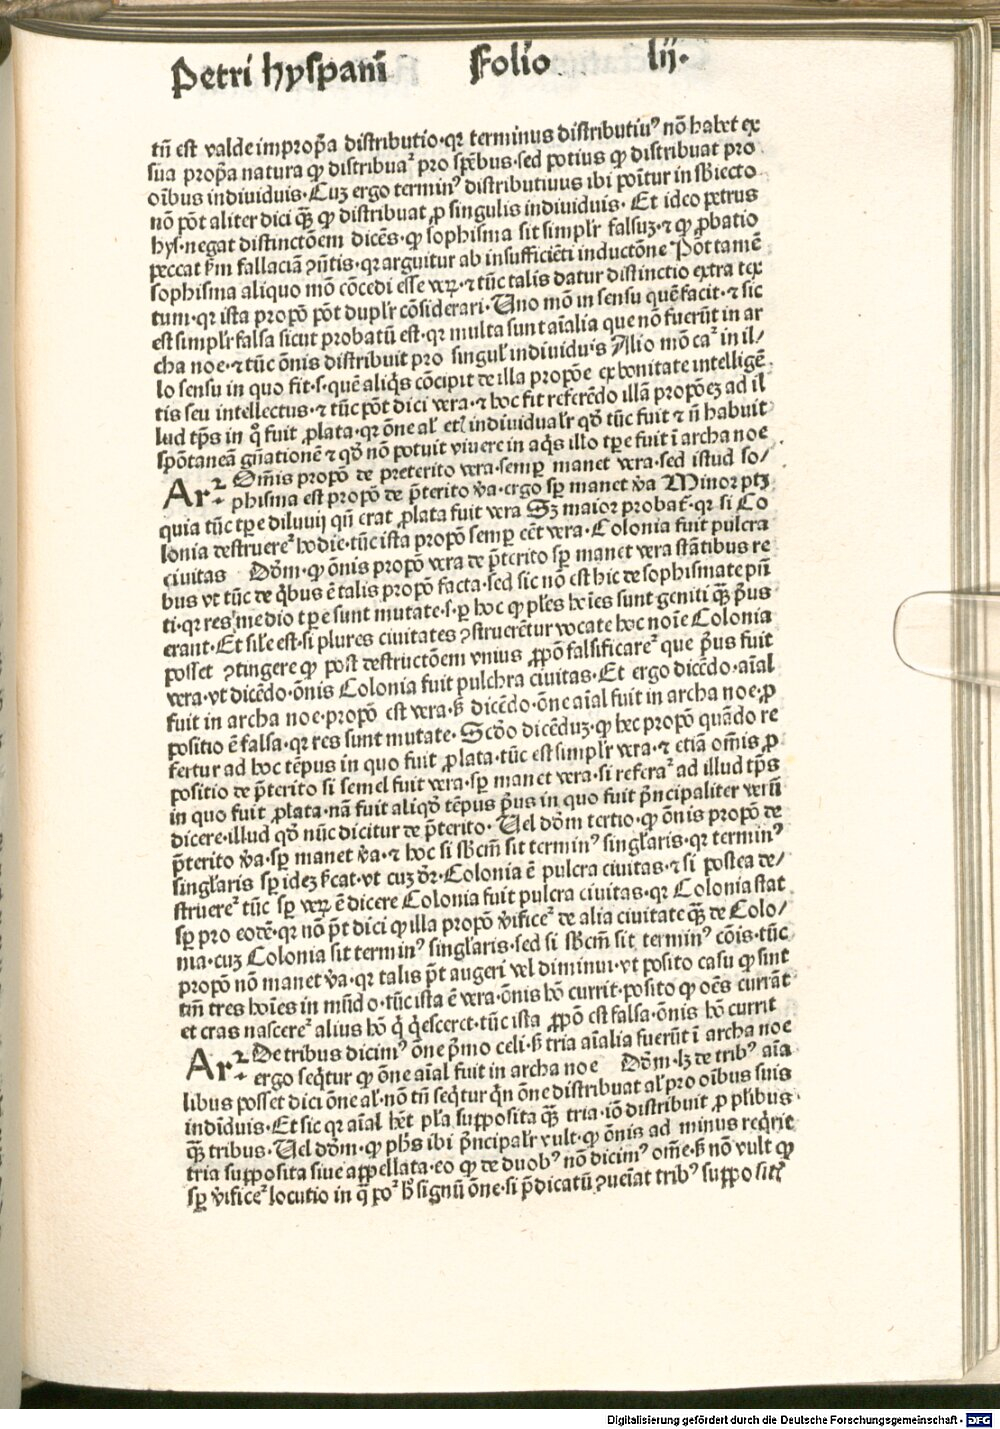 Petri hyspani̅ Folio lij.
tn̅ est valde impropr̅a distributio·qꝛ terminus distributiuꝰ no̅ habet ex
sua propr̅a natura ꝙ distribuaꝰ pro spe̅bus·sed potius ꝙ distribuat pro
oi̅bus indiuiduis·Cuꝫ ergo terminꝰ distributiuus ibi poi̅tur in sb̅iecto
no̅ po̅t aliter dici qꝫ̅ ꝙ distribuat ꝓ singulis indiuiduis· Et ideo petrus
hys·negat distincto̅em dice̅s·ꝙ sophisma sit simplr̅ falsuꝫ·⁊ ꝙ ꝓbatio
peccat k̅m fallacia̅ ꝯn̅tis·qꝛ arguitur ab insufficie̅ti inducto̅ne Po̅t tame̅
sophisma aliquo mo̅ co̅cedi esse veꝝ·⁊ tu̅c talis datur distinctio extra tex
tum·qꝛ ista propo̅ po̅t duplr̅ co̅siderari·Uno mo̅ in sensu que̅ facit·⁊ sic
est simplr̅ falsa sicut probatu̅ est·qꝛ multa sunt ai̅alia que no̅ fueru̅t in ar
cha noe·⁊ tu̅c o̅nis distribuit pro singul̅ indiuiduis Alio mo̅ caꝰ in il/
lo sensu in quo fit·s·que̅ aliq̅s co̅cipit de illa propo̅e ex bonitate intellige̅
tis seu intellectus·⁊ tu̅c po̅t dici vera·⁊ hoc fit refere̅do illa̅ propo̅eꝫ ad il
lud tp̅s in q̊ fuit ꝓlata·qꝛ o̅ne al̅ etꝫ indiuidualr̅ qd̅ tu̅c fuit ⁊ n̅ habuit
spo̅tanea̅ gn̅atione̅ ⁊ qd̅ no̅ potuit viuere in aq̅s illo tp̅e fuit i̅ archa noe
Arꝛ. Om̅is propo̅ de preterito vera·semꝑ manet vera·sed istud so/
phisma est propo̅ de p̅terito v̅a·ergo sꝑ manet v̅a Minor ptꝫ
quia tu̅c tp̅e diluuij qn̅ erat ꝓlata fuit vera Sꝫ maior probat̅·qꝛ si Co
lonia destruereꝰ hodie·tu̅c ista propo̅ semꝑ eēt vera·Colonia fuit pulcra
ciuitas Do̅m·ꝙ o̅nis propo̅ vera de p̅terito sꝑ manet vera sta̅tibus re
bus vt tu̅c de q̅bus e̅ talis propo̅ facta·sed sic no̅ est hic de sophismate pn̅
ti·qꝛ res medio tp̅e sunt mutate·s·ꝑ hoc ꝙ pl̅es ho̅ies sunt geniti qꝫ̅ p̅us
erant·Et sil̅e est·si plures ciuitates ꝯstruere̅tur vocate hoc noi̅e Colonia
posset ꝯtingere ꝙ post destructo̅em vnius ꝓpo̅ falsificareꝰ que p̅us fuit
vera·vt dice̅do·o̅nis Colonia fuit pulchra ciuitas·Et ergo dice̅do·ai̅al
fuit in archa noe·propo̅ est vera·ß dice̅do·o̅ne ai̅al fuit in archa noe·ꝓ
positio e̅ falsa·qꝛ res sunt mutate· Scd̅o dice̅duꝫ·ꝙ hec propo̅ qua̅do re
fertur ad hoc te̅pus in quo fuit ꝓlata·tu̅c est simplr̅ vera·⁊ etia̅ om̅is ꝓ
positio de p̅terito si semel fuit vera·sꝑ manet vera·si referaꝰ ad illud tp̅s
in quo fuit ꝓlata·na̅ fuit aliqd̅ te̅pus p̅us in quo fuit p̅ncipaliter veru̅
dicere·illud qd̅ nu̅c dicitur de p̅terito· Uel do̅m tertio·ꝙ o̅nis propo̅ de
p̅terito v̅a·sꝑ manet v̅a·⁊ hoc si sb̅cm̅ sit terminꝰ singl̅aris·qꝛ terminꝰ
singl̅aris sꝑ ideꝫ k̅cat·vt cuꝫ dr̅·Colonia e̅ pulcra ciuitas·⁊ si postea de/
struereꝰ tu̅c sꝑ veꝝ e̅ dicere Colonia fuit pulcra ciuitas·qꝛ Colonia stat
sꝑ pro eode̅·qꝛ no̅ p̅t dici ꝙ illa propo̅ v̅ificeꝰ de alia ciuitate qꝫ̅ de Colo/
nia·cuꝫ Colonia sit terminꝰ singl̅aris·sed si sb̅cm̅ sit terminꝰ co̅is·tu̅c
propo̅ no̅ manet v̅a·qꝛ talis p̅t augeri vel diminui·vt posito casu ꝙ sint
tm̅ tres ho̅ies in mu̅do·tu̅c ista e̅ vera·o̅nis ho̅ currit·posito ꝙ oe̅s curra̅t
et cras nascereꝰ alius ho̅ q̅ q̅esceret·tu̅c ista ꝓpo̅ est falsa·o̅nis ho̅ currit
Arꝛ. De tribus dicimꝰ o̅ne p̅mo celi·ß tria ai̅alia fueru̅t i̅ archa noe
ergo seq̅tur ꝙ o̅ne ai̅al fuit in archa noe Do̅m·lꝫ de tribꝰ ai̅a
libus posset dici o̅ne al̅·no̅ tn̅ seq̅tur q̅n o̅ne distribuat al̅ pro oi̅bus suis
indi̅duis·Et sic qꝛ ai̅al h̅et pl̅a supposita qꝫ̅ tria·io̅ distribuit ꝓ pl̅ibus
qꝫ̅ tribus·Uel do̅m·ꝙ ph̅s ibi p̅ncipalr̅ vult·ꝙ o̅nis ad minus req̅rit
tria supposita siue appellata·eo ꝙ de duobꝰ no̅ dicimꝰ om̅e·ß no̅ vult ꝙ
sꝑ v̅ificeꝰ locutio in q̅ poꝰ h̅ signu̅ o̅ne·si p̅dicatu̅ ꝯuei̅at tribꝰ suppositꝭ
Digitalisierung gefördert durch die Deutsche Forschungsgemeinschaft - DFG